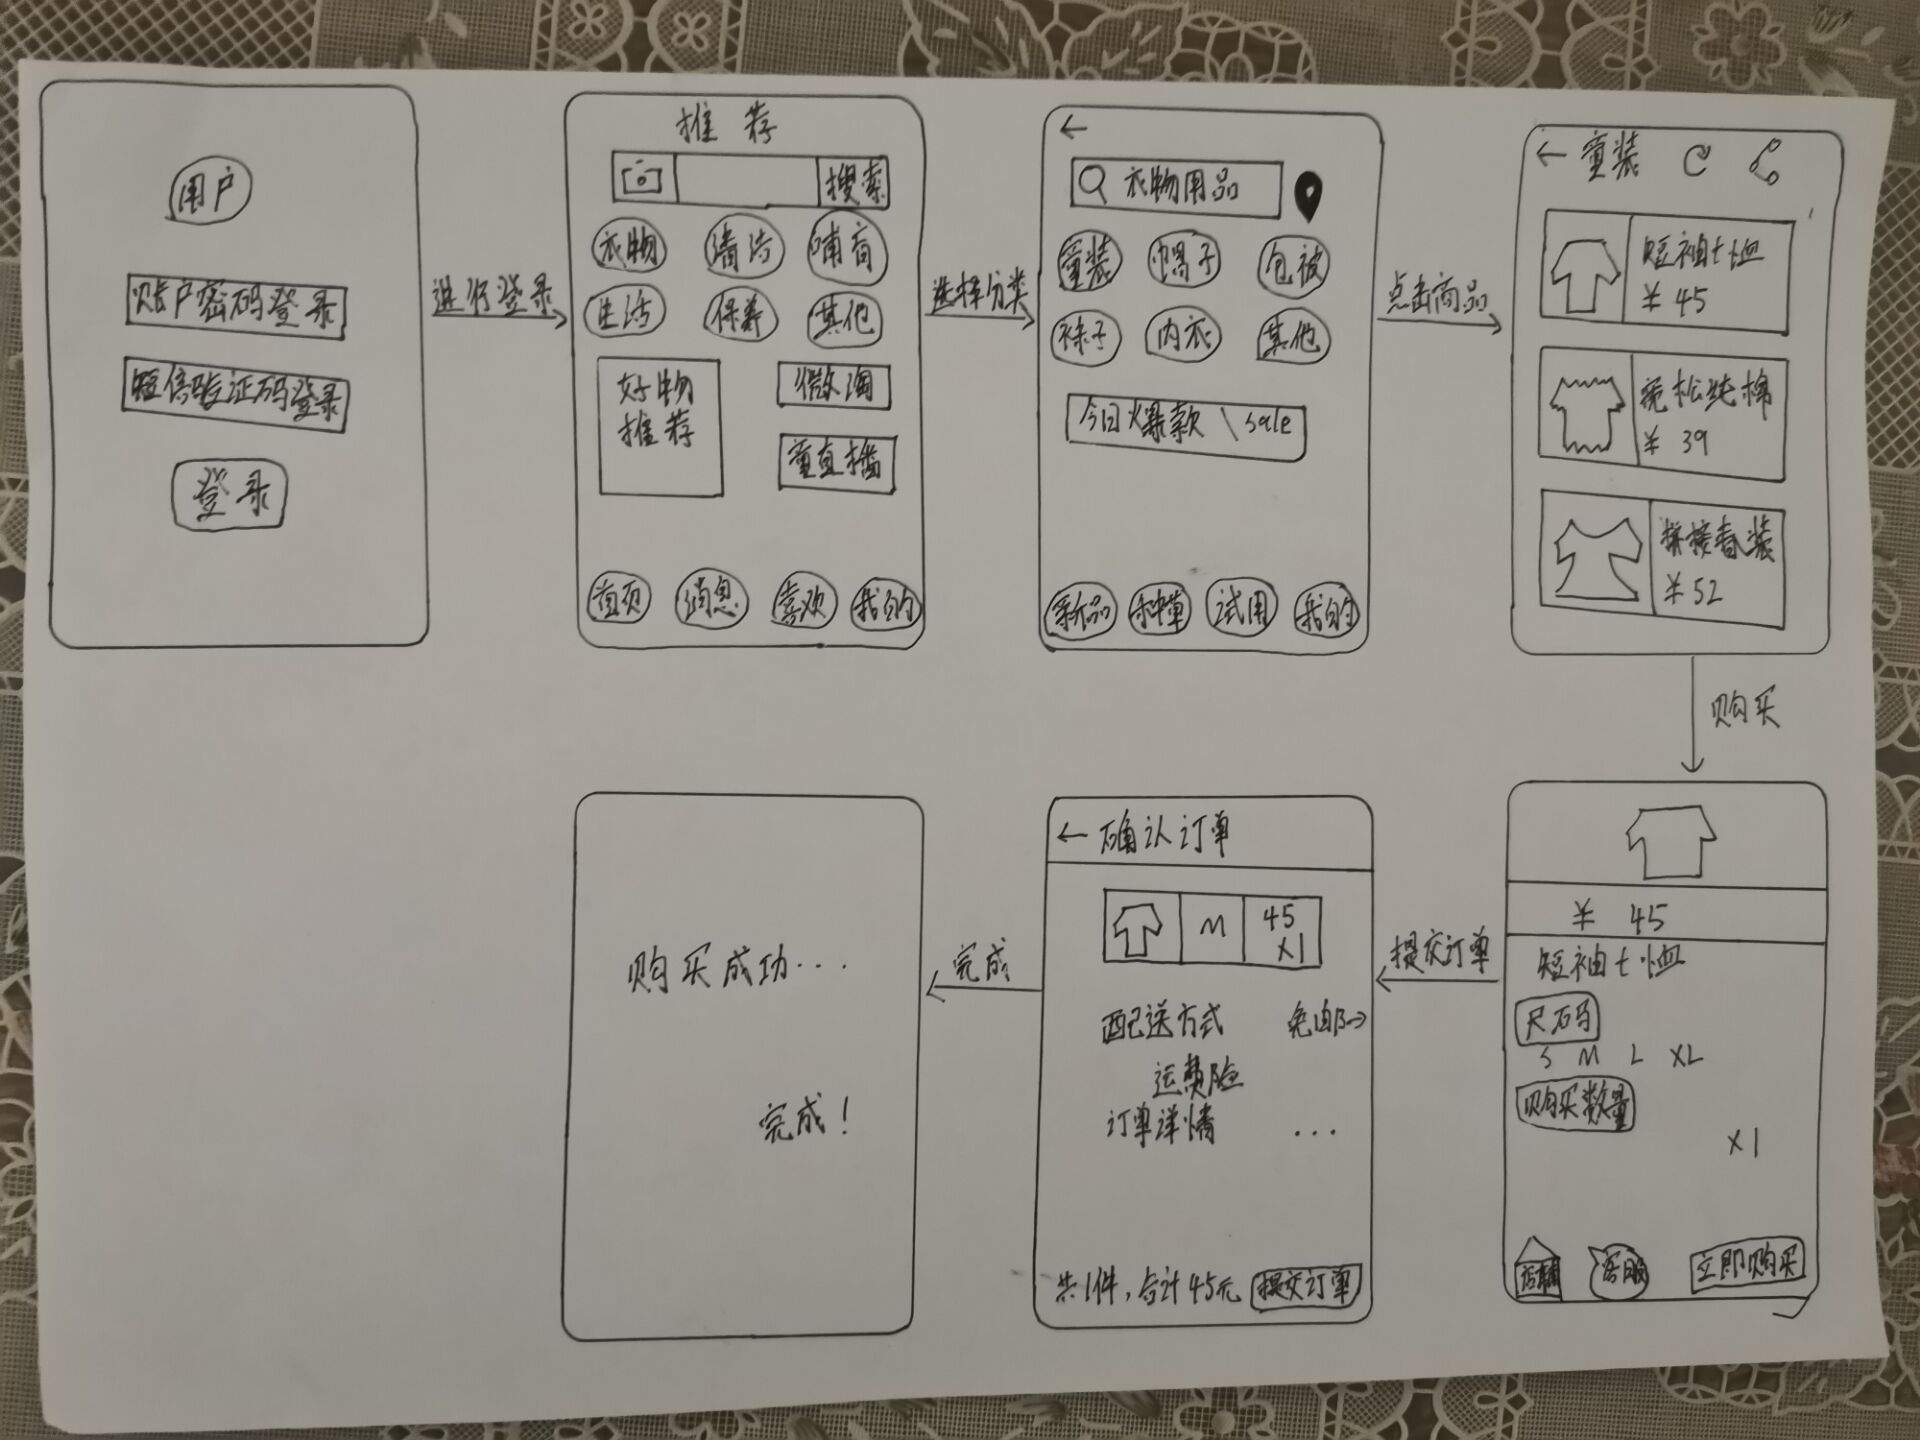 用户
账户密码登录
短信验证码登录
登录
进行登录
推荐
搜索
衣物 清洁 哺育
生活 保养 其他
好物
推荐
微淘
童直播
首页 消息 喜欢 我的
选择分类
衣物用品
童装 帽子 包被
袜子 内衣 其他
今日爆款 \ sale
新品 种草 试用 我的
点击商品
童装
短袖t恤
¥ 45
宽松纯棉
¥ 39
拼接春装
¥ 52
购买
¥ 45
短袖t恤
尺码
S M L XL
购买数量
X1
店铺 客服 立即购买
提交订单
确认订单
M
45
X1
配送方式 免邮
运费险
订单详情 ...
共1件,合计45元 提交订单
完成
购买成功...
完成!